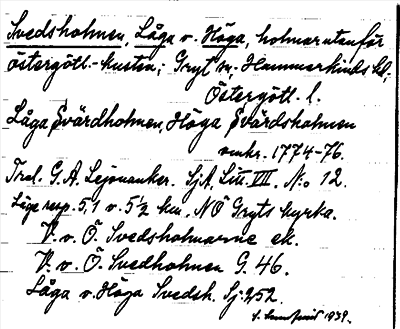 Svedsholmen, Låga o. Höga, holmar utanför
Östergötl.-kusten; Gryt sn; Hammarkinds hd;
Östergötl. l.
Låga Svärdholmen, Höga Svärdsholmen
omkr. 1774-76.
G. A. Lejonanker. Sj.A. Litt. VII. No 12.
Läge resp. 5,1 o. 5½ km. NÖ Gryts kyrka.
V. o. Ö. Svedsholmarne ek.
V. o. Ö. Svedholmen G. 46.
Låga o. Höga Svedsh. Sj. 252.
1939.